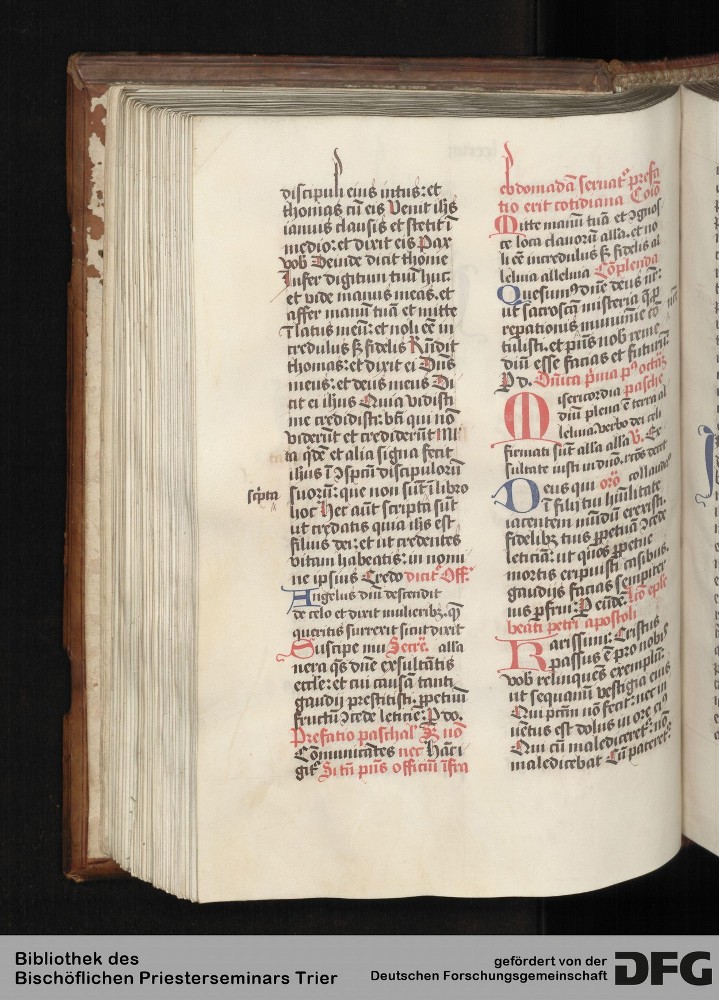 discipuli eius intus: et
thomas cū eis Venit ihs
ianuis clausis et stetit ī
medio: et dixit eis Pax
vob Deinde dicit thome
Infer digitum tuū huc:
et vide manus meas. et
affer manū tuā et mitte
ī latus meū: et noli eē in
credulus ſꝫ fidelis Rn̄dit
thomas: et dixit ei Dn̄s
meus: et deus meus Di
cit ei ihus Quia vidisti
me credidisti: bt̄i qui nō
viderūt et crediderūt Ml
ta qͥdē et alia signa fecit
ihus ī ↄspc̄u discipulorū
scͥpta
suorū: que non sūt ī libro
hoc Hec aūt scripta sūt
ut credatis quia ihs est
filius dei: et ut credentes
vitam habeatis: in nomi
ne ipsius Credo dicit͛ Off.
Angelus dn̄i descendit
de celo et dixit mulieribꝫ. qͥ
queritis surrexit sicut dixit
Suscipe mu Secre͛. alla
nera qs dn̄e exsultātis
eccl̄e: et cui causā tanti
gaudij prestitisti. ꝑpetuū
fructū ↄcede leticie: P do.
Prefatio paschal͛ et nō
Cōmunicātes nec Hāc i
git͛ Si tn̄ pͥus officiū īfra
ebdomadā seruat͛ prefa
tio erit cotidiana Cōīo
Mitte manū tuā et ↄgnos
ce loca clauorū alla. et no
li eē incredulus ſꝫ fidelis al
leluia alleluia Cōplenda
Quesumꝰ dn̄e deus nr̄:
ut sacroscā misteria q̄ ꝓ
nr̄e
reparationis munimīe cō
tulisti. et pn̄s nob reme
diū esse facias et futurū
P d. Dn̄ica pͥma pꝰ octāꝫ pasche
Misericordia
dn̄i plena ē terra al
leluia: verbo dei celi
firmati sūt alla alla V. Ex
sultate iusti in dn̄o. rc̄os decet
Deus qui orō collaudaͦ
ī filij tui hūilitate
iacentem mūdū erexisti.
fidelibꝫ tuis ꝑpetuā ↄcede
leticiā: ut quos ꝑpetue
mortis eripuisti casibus.
gaudijs facias sempiter
nis ꝑfrui: P eūdē. Lc̄o epl̄e
beati petri apostoli
Karissimi: Cristus
passus ē pro nobis
vob relinquēs exemplū:
ut sequamī vestigia eius
Qui pcc̄m nō fecit: nec in
uētus est dolus in ore eiꝰ
Qui cū malediceret͛: nō
maledicebat Cū pateret͛:
Bibliothek des
Bischöflichen Priesterseminars Trier
gefördert von der
Deutschen Forschungsgemeinschaft
DFG